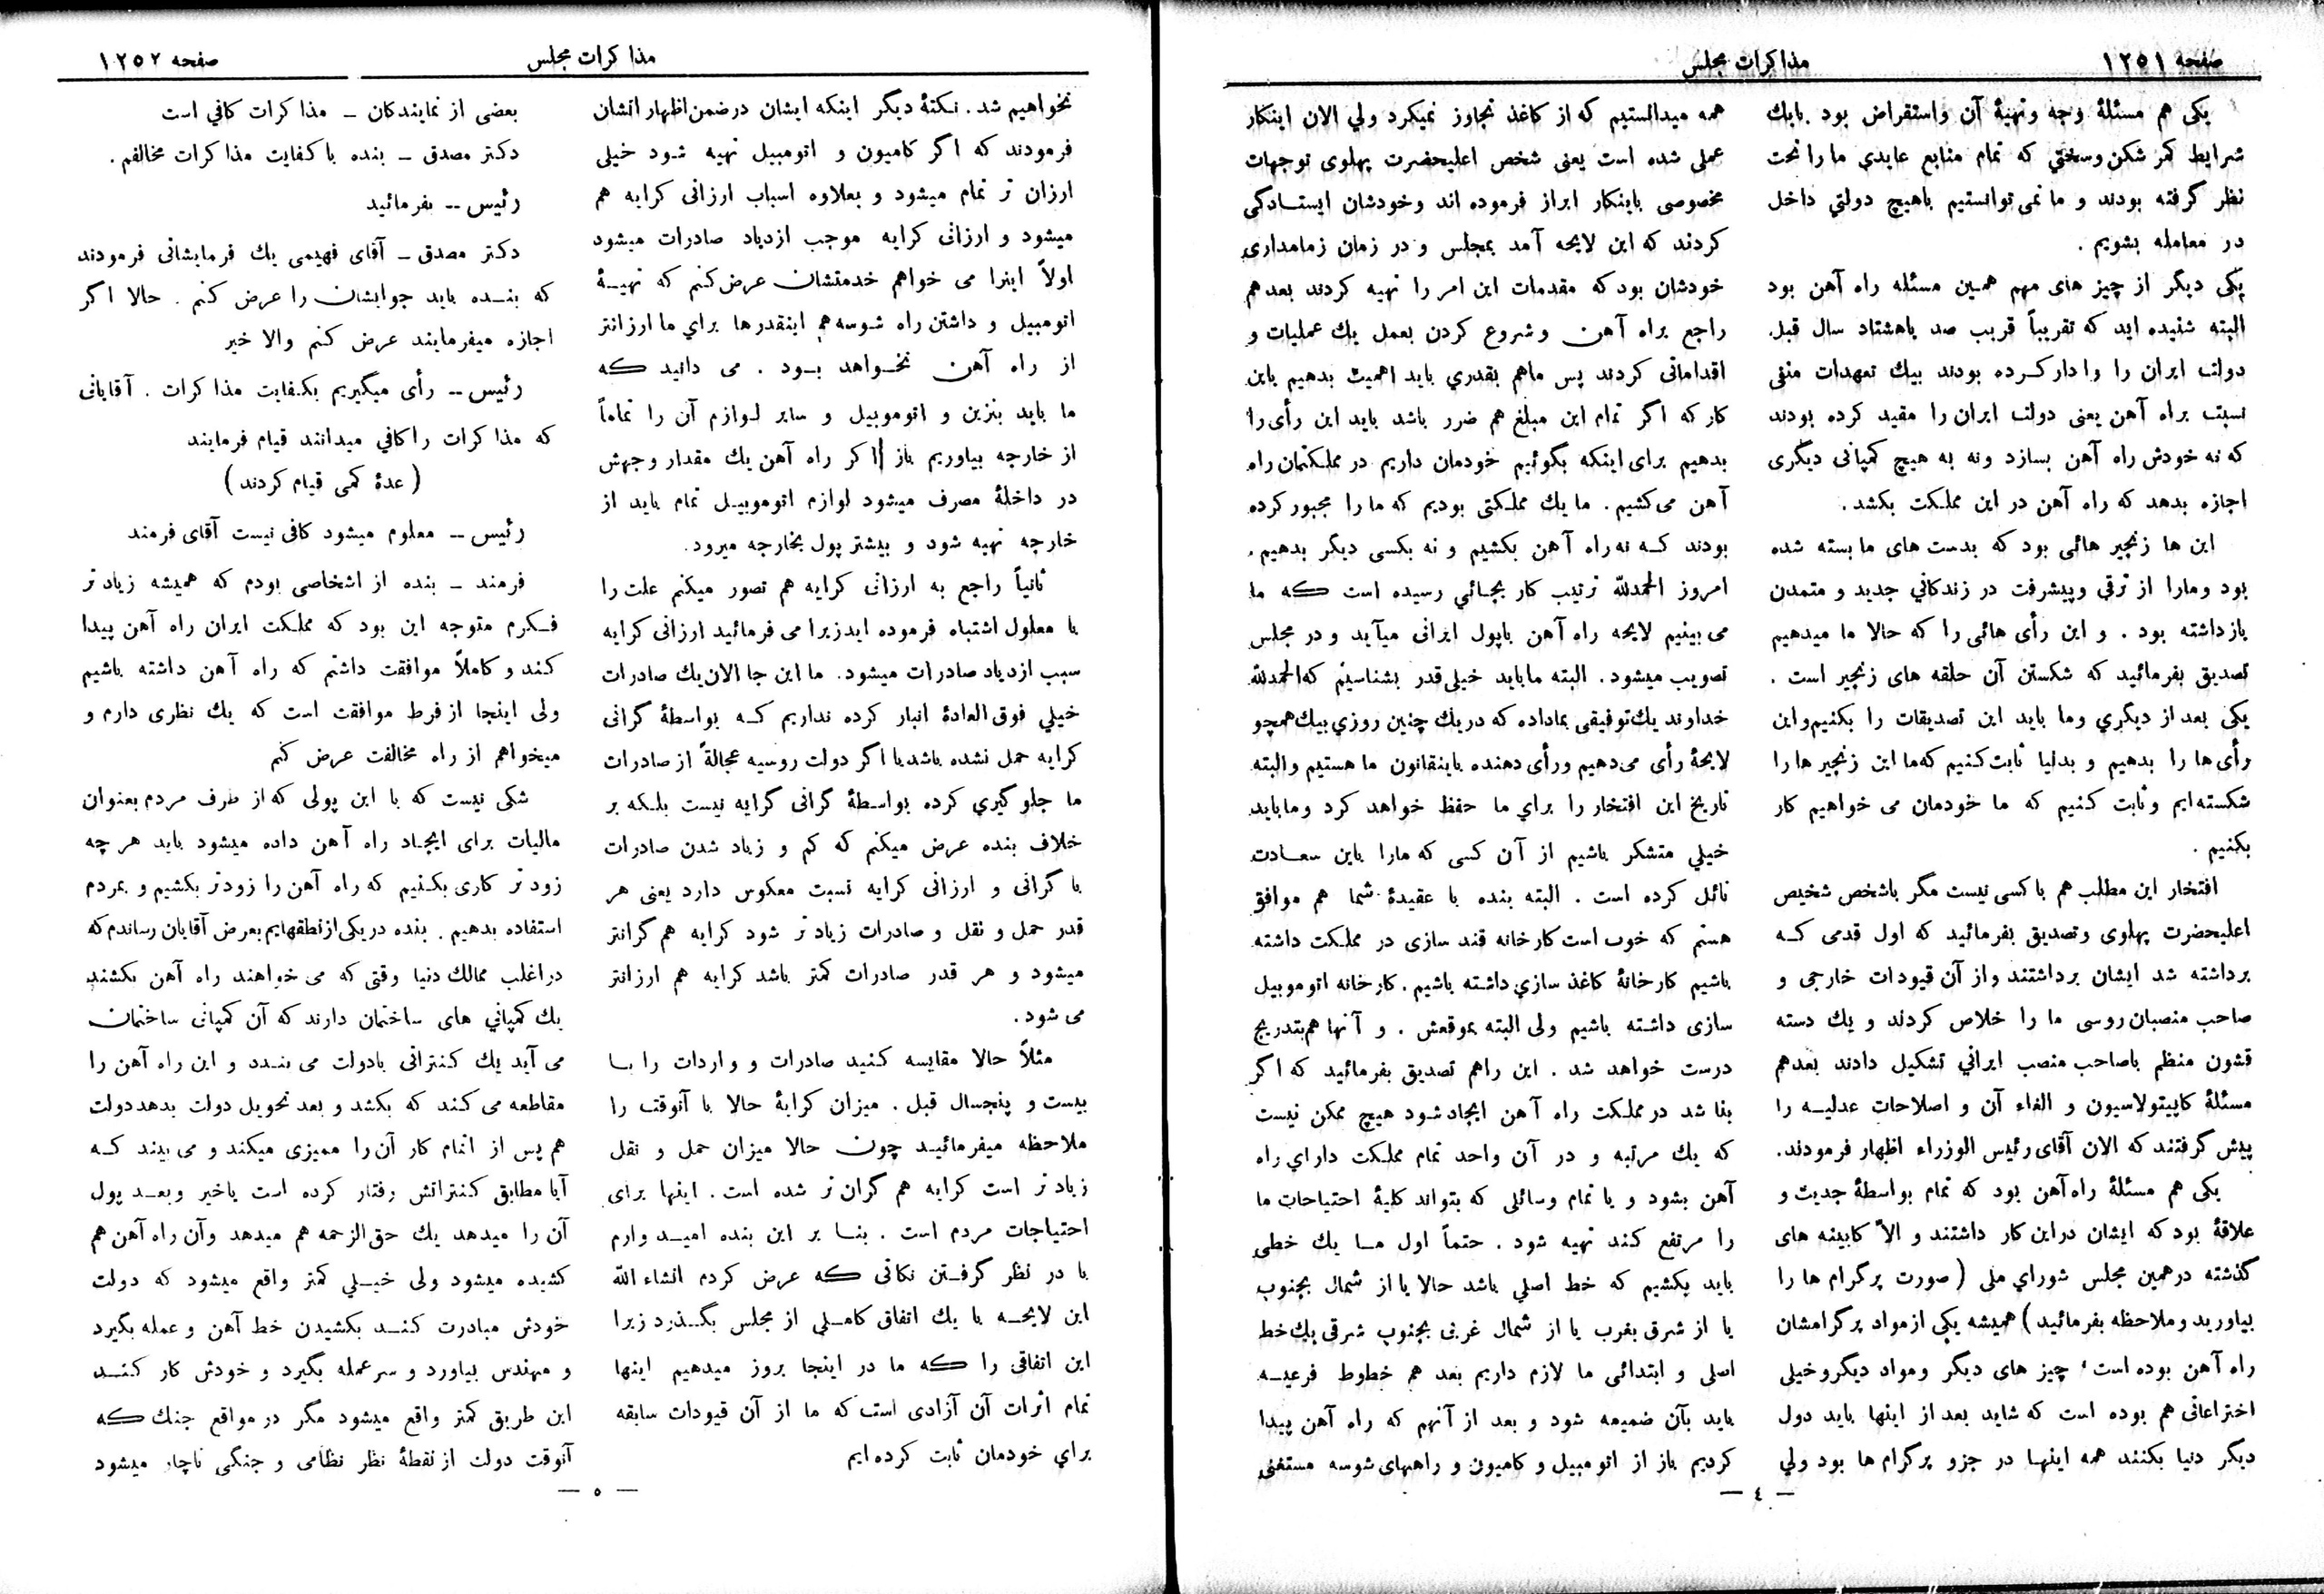 صفحه ١٢٥١
مذاكرات مجلس
يكى هم مسئلۀ وجه وتهيۀ آن واستقراض بود بايك
شرايط كمر شكن وسختي كه تمام منابع عايدي ما را تحت
نظر گرفته بودند و ما نمى توانستيم باهيچ دولتي داخل
در معامله بشويم .
يكى ديگر از چيز هاى مهم همين مسئله راه آهن بود
البته شنيده ايد كه تقريباً قريب صد ياهشتاد سال قبل
دولت ايران را وادار كرده بودند بيك تعهدات منفى
نسبت براه آهن يعنى دولت ايران را مقيد كرده بودند
كه نه خودش راه آهن بسازد ونه به هيچ كمپانى ديگرى
اجازه بدهد كه راه آهن در اين مملكت بكشد .
اين ها زنجير هائى بود كه بدست هاى ما بسته شده
بود ومارا از ترقي وپيشرفت در زندگاني جديد و متمدن
بازداشته بود . و اين رأى هائى را كه حالا ما ميدهيم
تصديق بفرمائيد كه شكستن آن حلقه هاى زنجير است .
يكى بعد از ديگري وما بايد اين تصديقات را بكنيم واين
رأى ها را بدهيم و بدنيا ثابت كنيم كه ما اين زنجير ها را
شكسته ايم وثابت كنيم كه ما خودمان مى خواهيم كار
بكنيم .
افتخار اين مطلب هم باكسى نيست مگر باشخص شخيص
اعليحضرت پهلوى وتصديق بفرمائيد كه اول قدمى كه
برداشته شد ايشان برداشتند و از آن قيودات خارجى و
صاحب منصبان روسى ما را خلاص كردند و يك دسته
قشون منظم باصاحب منصب ايراني تشكيل دادند بعدهم
مسئلۀ كاپيتولاسيون و الغاء آن و اصلاحات عدليه را
پيش گرفتند كه الان آقاى رئيس الوزراء اظهار فرمودند.
يكى هم مسئلۀ راه آهن بود كه تمام بواسطۀ جديت و
علاقۀ بود كه ايشان دراين كار داشتند و الاّ كابينه هاى
گذشته درهمين مجلس شوراي ملى ( صورت پرگرام ها را
بياوريد وملاحظه بفرمائيد ) هميشه يكى ازمواد پرگرامشان
راه آهن بوده است، چيز هاى ديگر ومواد ديگر وخيلى
اختراعاتى هم بوده است كه شايد بعد از اينها بايد دول
ديگر دنيا بكنند همه اينها در جزو پرگرام ها بود ولي
همه ميدانستيم كه از كاغذ تجاوز نميكرد ولي الان اينكار
عملي شده است يعنى شخص اعليحضرت پهلوى توجهات
مخصوصى باينكار ابراز فرموده اند وخودشان ايستادگى
كردند كه اين لايحه آمد بمجلس و در زمان زمامدارى
خودشان بود كه مقدمات اين امر را تهيه كردند بعد هم
راجع براه آهن وشروع كردن بعمل يك عمليات و
اقداماتى كردند پس ماهم بقدري بايد اهميت بدهيم باين
كار كه اگر تمام اين مبلغ هم ضرر باشد بايد اين رأى را
بدهيم براى اينكه بگوئيم خودمان داريم در مملكتمان راه
آهن مى كشيم . ما يك مملكتى بوديم كه ما را مجبور كرده
بودند كه نه راه آهن بكشيم و نه بكسى ديگر بدهيم .
امروز الحمدلله ترتيب كار بجائي رسيده است كه ما
مى بينيم لايحه راه آهن باپول ايرانى ميآيد و در مجلس
تصويب ميشود . البته مابايد خيلى قدر بشناسيم كه الحمدلله
خداوند يك توفيقى بماداده كه در يك چنين روزي بيك همچو
لايحۀ رأى مى دهيم ورأى دهنده باينقانون ما هستيم والبته
تاريخ اين افتخار را براي ما حفظ خواهد كرد ومابايد
خيلي متشكر باشيم از آن كسى كه مارا باين سعادت
نائل كرده است . البته بنده با عقيدۀ شما هم موافق
هستم كه خوب است كارخانه قند سازى در مملكت داشته
باشيم كارخانۀ كاغذ سازي داشته باشيم . كارخانه اتوموبيل
سازى داشته باشيم ولى البته بموقعش . و آنها هم بتدريج
درست خواهد شد . اين راهم تصديق بفرمائيد كه اگر
بنا شد در مملكت راه آهن ايجاد شود هيچ ممكن نيست
كه يك مرتبه و در آن واحد تمام مملكت داراي راه
آهن بشود و يا تمام وسائلى كه بتواند كليۀ احتياجات ما
را مرتفع كند تهيه شود . حتماً اول ما يك خطي
بايد بكشيم كه خط اصلي باشد حالا يا از شمال بجنوب
يا از شرق بغرب يا از شمال غربى بجنوب شرقى يك خط
اصلى و ابتدائى ما لازم داريم بعد هم خطوط فرعيه
بايد بآن ضميمه شود و بعد از آنهم كه راه آهن پيدا
كرديم باز از اتومبيل و كاميون و راههاى شوسه مستغنى
— ٤ —
صفحه ١٢٥٢
مذاكرات مجلس
نخواهيم شد . نكتۀ ديگر اينكه ايشان درضمن اظهاراتشان
فرمودند كه اگر كاميون و اتومبيل تهيه شود خيلى
ارزان تر تمام ميشود و بعلاوه اسباب ارزانى كرايه هم
ميشود و ارزانى كرايه موجب ازدياد صادرات ميشود
اولاً اينرا مى خواهم خدمتشان عرض كنم كه تهيۀ
اتومبيل و داشتن راه شوسه هم اينقدرها براي ما ارزانتر
از راه آهن نخواهد بود . مى دانيد كه
ما بايد بنزين و اتوموبيل و ساير لوازم آن را تماماً
از خارجه بياوريم باز اگر راه آهن يك مقدار وجهش
در داخلۀ مصرف ميشود لوازم اتوموبيل تمام بايد از
خارجه تهيه شود و بيشتر پول بخارجه ميرود.
ثانياً راجع به ارزانى كرايه هم تصور ميكنم علت را
با معلول اشتباه فرموده ايد زيرا مى فرمائيد ارزانى كرايه
سبب ازدياد صادرات ميشود. ما اين جا الان يك صادرات
خيلي فوق العادۀ انبار كرده نداريم كه بواسطۀ گرانى
كرايه حمل نشده باشد يا اگر دولت روسيه عجالةً از صادرات
ما جلوگيري كرده بواسطۀ گرانى كرايه نيست بلكه بر
خلاف بنده عرض ميكنم كه كم و زياد شدن صادرات
با گرانى و ارزانى كرايه نسبت معكوس دارد يعنى هر
قدر حمل و نقل و صادرات زيادتر شود كرايه هم گرانتر
ميشود و هر قدر صادرات كمتر باشد كرايه هم ارزانتر
مى شود .
مثلاً حالا مقايسه كنيد صادرات و واردات را با
بيست و پنجسال قبل . ميزان كرايۀ حالا با آنوقت را
ملاحظه ميفرمائيد چون حالا ميزان حمل و نقل
زيادتر است كرايه هم گران تر شده است . اينها براى
احتياجات مردم است . بنا بر اين بنده اميدوارم
با در نظر گرفتن نكاتى كه عرض كردم انشاء الله
اين لايحه با يك اتفاق كاملى از مجلس بگذرد زيرا
اين اتفاقى را كه ما در اينجا بروز ميدهيم اينها
تمام اثرات آن آزادى است كه ما از آن قيودات سابقه
براي خودمان ثابت كرده ايم
بعضى از نمايندكان – مذاكرات كافي است
دكتر مصدق – بنده باكفايت مذاكرات مخالفم .
رئيس -- بفرمائيد
دكتر مصدق – آقاى فهيمى يك فرمايشاتى فرمودند
كه بنده بايد جوابشان را عرض كنم . حالا اگر
اجازه ميفرمايند عرض كنم والا خير
رئيس -- رأى ميگيريم بكفايت مذاكرات . آقايانى
كه مذاكرات راكافي ميدانند قيام فرمايند
( عدۀ كمى قيام كردند )
رئيس -- معلوم ميشود كافى نيست آقاى فرمند
فرمند – بنده از اشخاصى بودم كه هميشه زيادتر
فكرم متوجه اين بود كه مملكت ايران راه آهن پيدا
كند و كاملاً موافقت داشتم كه راه آهن داشته باشيم
ولى اينجا از فرط موافقت است كه يك نظرى دارم و
ميخواهم از راه مخالفت عرض كنم
شكى نيست كه با اين پولى كه از طرف مردم بعنوان
ماليات براى ايجاد راه آهن داده ميشود بايد هر چه
زودتر كارى بكنيم كه راه آهن را زودتر بكشيم و بمردم
استفاده بدهيم . بنده در يكى از نطقهايم بعرض آقايان رساندم كه
در اغلب ممالك دنيا وقتى كه مى خواهند راه آهن بكشند
يك كمپاني هاى ساختمان دارند كه آن كمپانى ساختمان
مى آيد يك كنتراتى بادولت مى بندد و اين راه آهن را
مقاطعه مى كند كه بكشد و بعد تحويل دولت بدهد دولت
هم پس از اتمام كار آن را مميزى ميكند و مى بيند كه
آيا مطابق كنتراتش رفتار كرده است ياخير وبعد پول
آن را ميدهد يك حق الزحمه هم ميدهد وآن راه آهن هم
كشيده ميشود ولى خيلي كمتر واقع ميشود كه دولت
خودش مبادرت كند بكشيدن خط آهن و عمله بگيرد
و مهندس بياورد و سرعمله بگيرد و خودش كار كند
اين طريق كمتر واقع ميشود مگر در مواقع جنك كه
آنوقت دولت از نقطۀ نظر نظامى و جنگى ناچار ميشود
— ٥ —